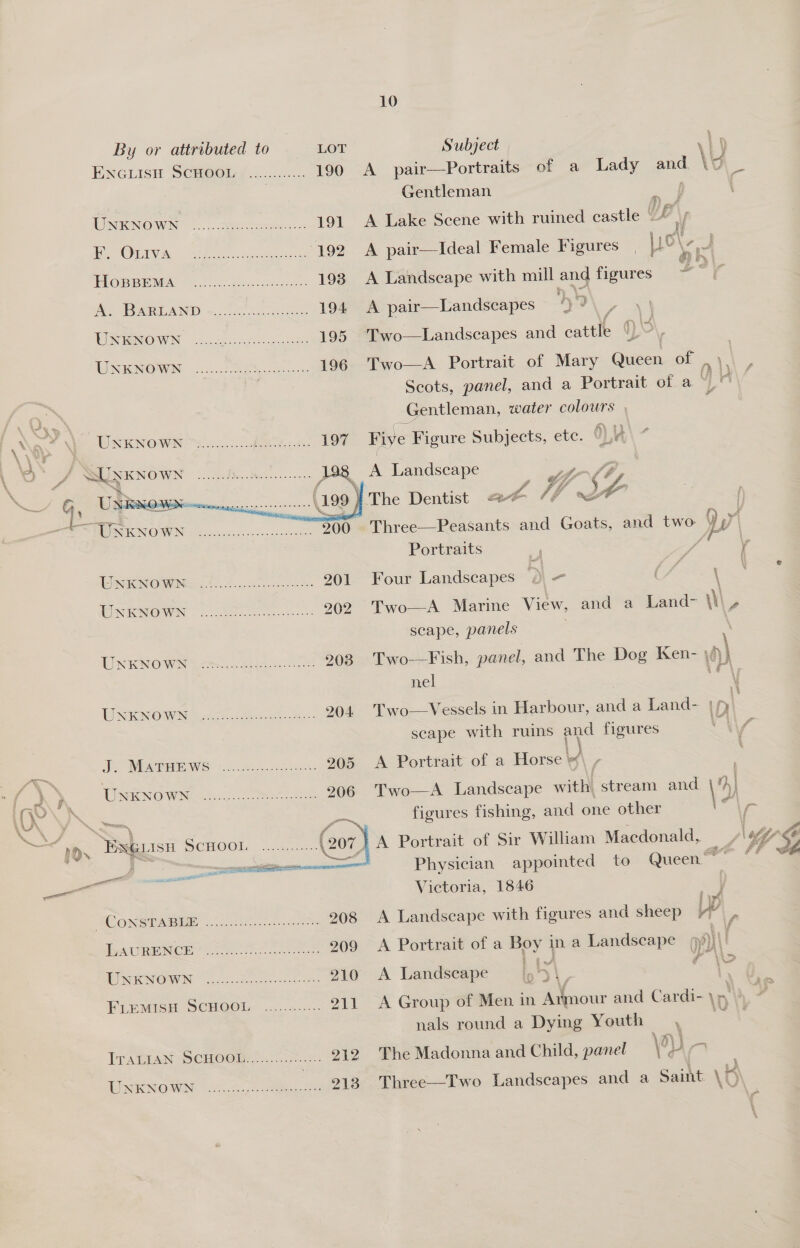 10
By or attributed to LOT Subject
ENGLISH SCHOOL ............ 190 A pair—Portraits of a Lady and
Gentleman
UNKNOWN ........................ 191 A Lake Scene with ruined castle
F. OLIVA ........................ 192 A pair—Ideal Female Figures
HOBBEMA ........................ 193 A Landscape with mill and figures
A. BARLAND ..................... 194 A pair—Landscapes
UNKNOWN ........................ 195 Two—Landscapes and cattle
UNKNOWN ........................ 196 Two—A Portrait of Mary Queen of
Scots, panel, and a Portrait of a
Gentleman, water colours
UNKNOWN ........................ 197 Five Figure Subjects, etc.
UNKNOWN ........................ 198 A Landscape
G. UNKNOWN ........................ 199 The Dentist
UNKNOWN ........................ 200 Three—Peasants and Goats, and two
Portraits
UNKNOWN ........................ 201 Four Landscapes
UNKNOWN ........................ 202 Two—A Marine View, and a Land-
scape, panels
UNKNOWN ........................ 203 Two—Fish, panel, and The Dog Ken-
nel
UNKNOWN ........................ 204 Two—Vessels in Harbour, and a Land-
scape with ruins and figures
J. MATHEWS ..................... 205 A Portrait of a Horse
UNKNOWN ........................ 206 Two—A Landscape with stream and
figures fishing, and one other
ENGLISH SCHOOL ............ 207 A Portrait of Sir William Macdonald,
Physician appointed to Queen
Victoria, 1846
CONSTABLE ..................... 208 A Landscape with figures and sheep
LAURENCE ..................... 209 A Portrait of a Boy in a Landscape
UNKNOWN ........................ 210 A Landscape
FLEMISH SCHOOL ............ 211 A Group of Men in Armour and Cardi-
nals round a Dying Youth
ITALIAN SCHOOL ............... 212 The Madonna and Child, panel
UNKNOWN ........................ 213 Three—Two Landscapes and a Saint